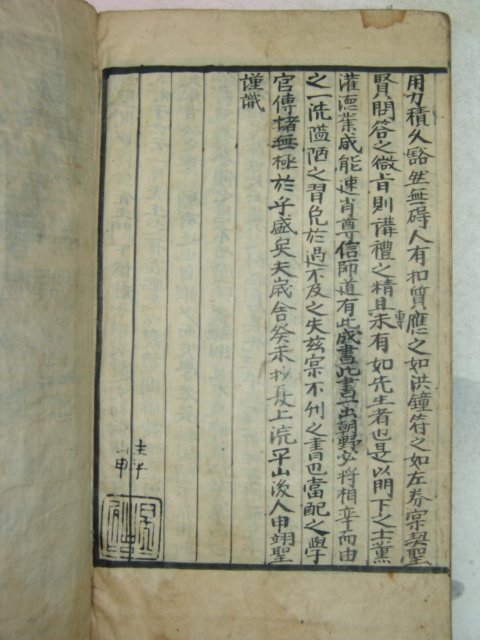 用力積久豁然無碍人有扣質應之如洪鐘符之如左券宲契聖
賢問答之微肯則講禮之精且専未有如先生者也是以門下之士薰
灌德業成能速肖尊信師道有此成書此書一出朝野必將相率而由
之一洗隘陋之習免於過不及之失玆宲不刊之書也當配之學
官傳堵無極於乎盛矣夫歲舍癸未抄夏上浣平山後人申翊聖
謹識